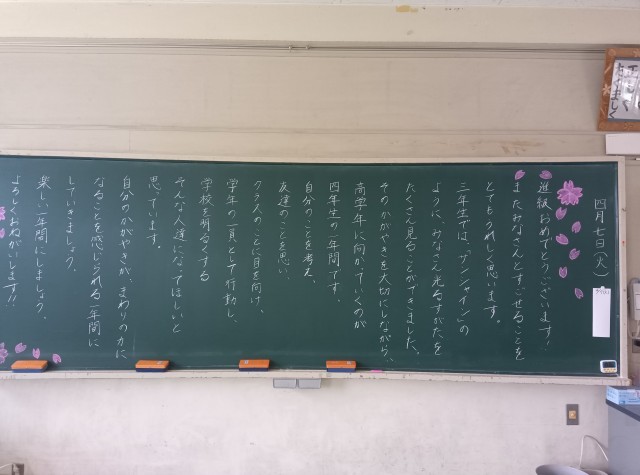 四月七日（火）
進級おめでとうございます！
またみなさんとすごせることを
とてもうれしく思います。
三年生では、「サンシャイン」の
ように、みなさん光るすがたを
たくさん見ることができました。
そのかがやきを大切にしながら、
高学年に向かっていくのが
四年生の一年間です。
自分のことを考え、
友達のことを思い、
クラスのことに目を向け、
学年の一員として行動し、
学校を明るくする
そんな人達になってほしいと
思っています。
自分のかがやきが、まわりの力に
なることを感じられる一年間に
していきましょう。
楽しい一年間にしましょう。
よろしくおねがいします!!